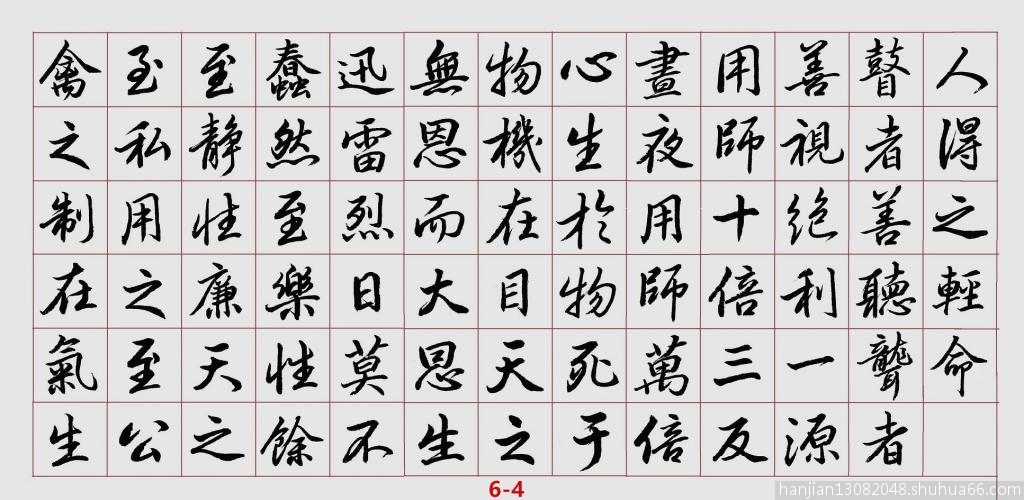 人得之輕命
瞽者善聽聾者
善視絶利一源
用師十倍三反
晝夜用師萬倍
心生於物死于
物機在目天之
無恩而大恩生
迅雷烈日莫不
蠢然至樂性餘
至静性廉天之
至私用之至公
禽之制在氣生
6-4
hanjian13082048.shuhua66.com